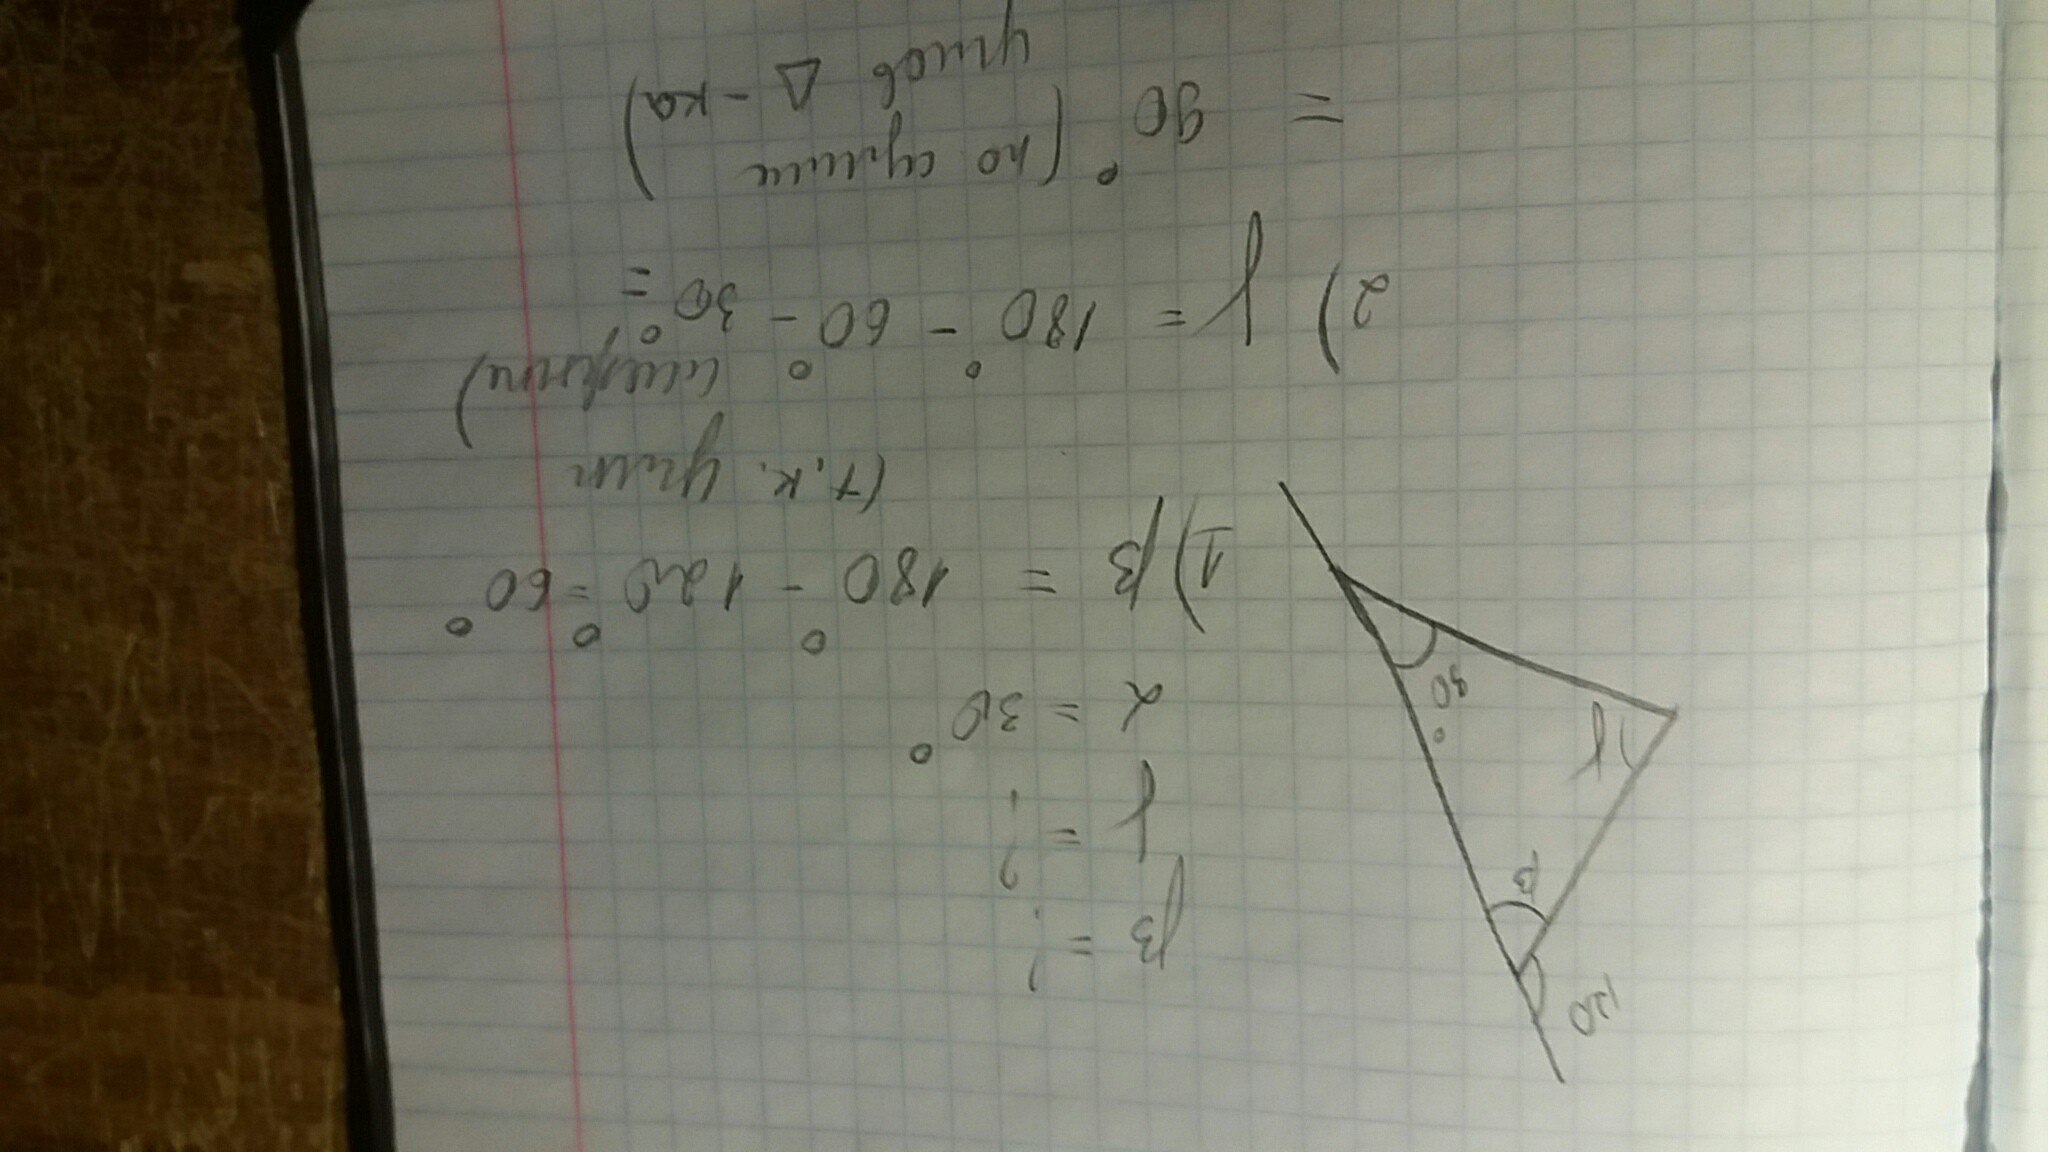 120
β
β = ?
γ
γ = ?
30°
α = 30°
1) β = 180° - 120° = 60°
(т.к. углы
смежные)
2) γ = 180° - 60° - 30° =
= 90° (по сумме
углов Δ - ка)